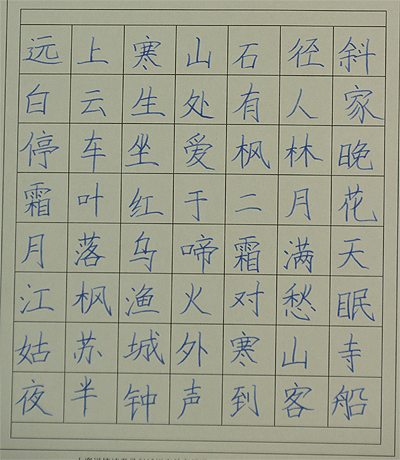 远上寒山石径斜
白云生处有人家
停车坐爱枫林晚
霜叶红于二月花
月落乌啼霜满天
江枫渔火对愁眠
姑苏城外寒山寺
夜半钟声到客船